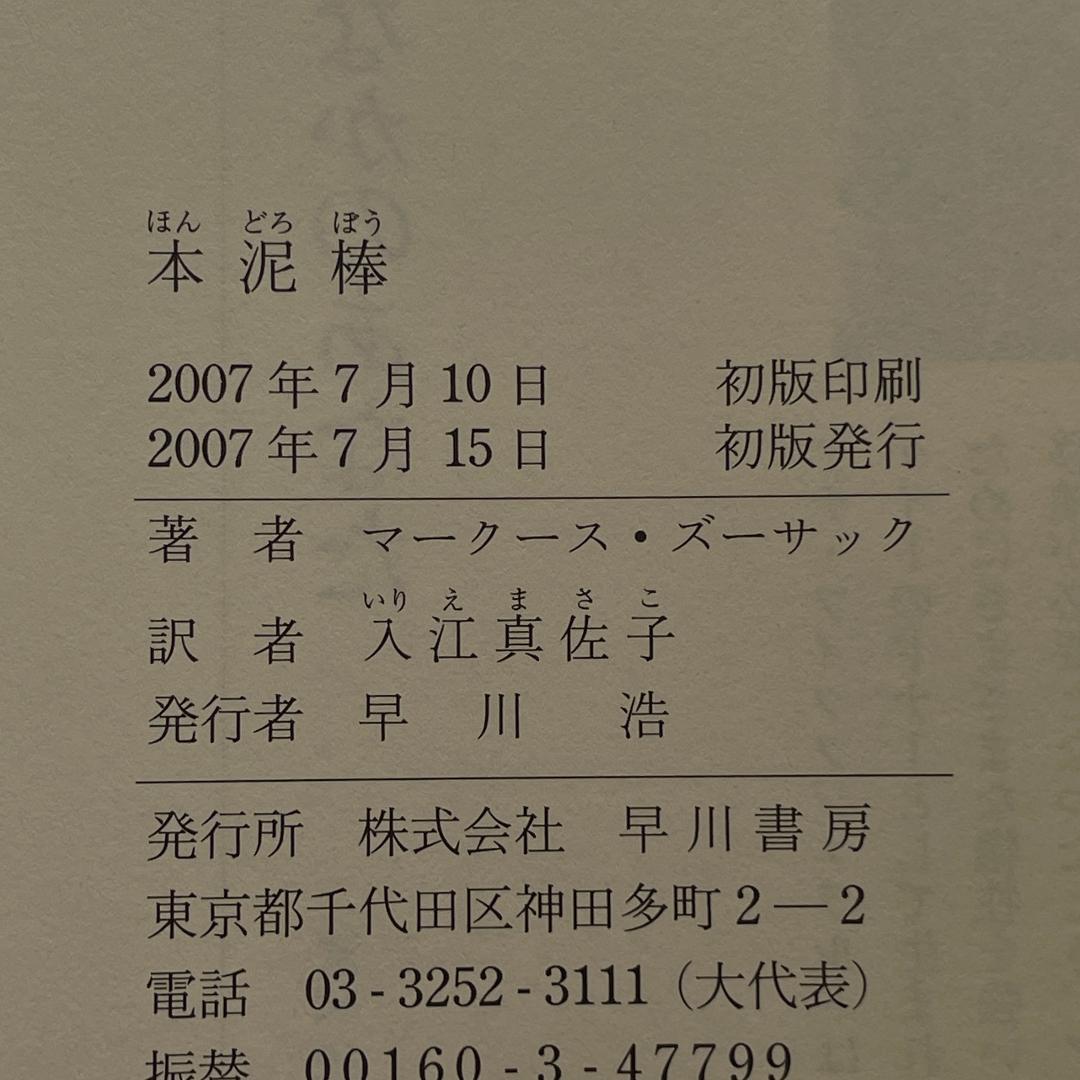 ほん どろ ぼう
本泥棒
2007年7月10日 初版印刷
2007年7月15日 初版発行
著 者 マークース・ズーサック
いり え ま さ こ
訳 者 入江真佐子
発行者 早川 浩
発行所 株式会社 早川書房
東京都千代田区神田多町2―2
電話 03-3252-3111(大代表)
振替 00160-3-47799